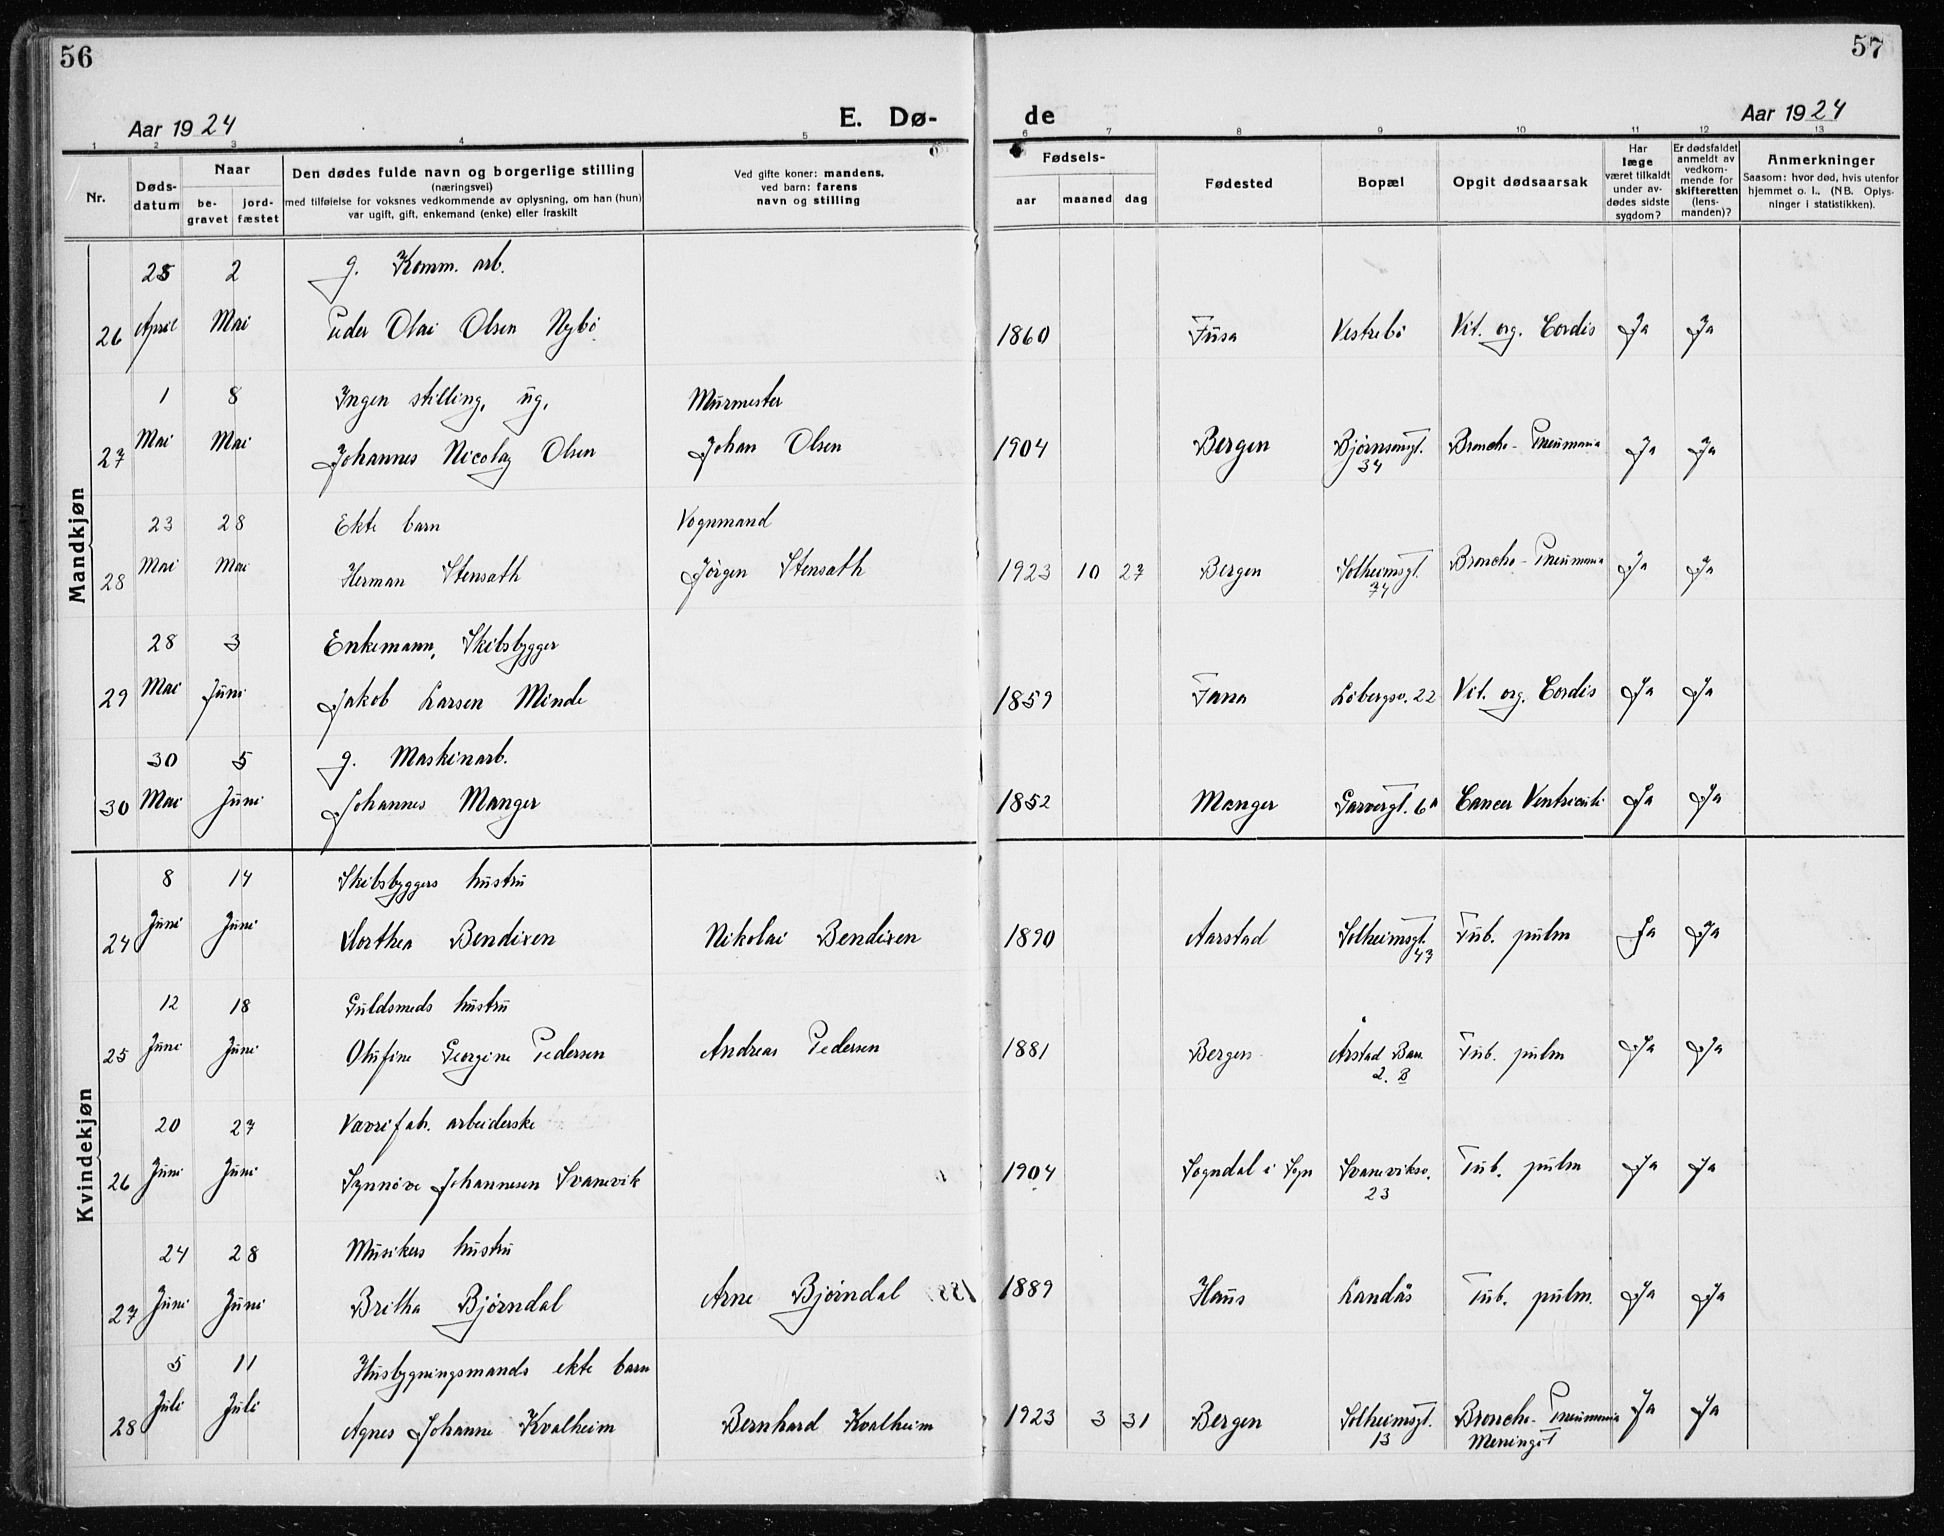 56
57
Aar 1924
E. Dø-
de
Aar 1924
1 2 3 4 5 6 7 8 9 10 11 12 13
Nr.
Døds-
datum
Naar
be-
gravet
jord-
fæstet
Den dødes fulde navn og borgerlige stilling
(næringsvei)
med tilføielse for voksnes vedkommende av oplysning, om han (hun)
var ugift, gift, enkemand (enke) eller fraskilt
Ved gifte koner: mandens,
ved barn: farens
navn og stilling
Fødsels-
aar maaned dag
Fødested
Bopæl
Opgit dødsaarsak
Har
læge
været tilkaldt
under av-
dødes sidste
sygdom?
Er dødsfaldet
anmeldt av
vedkom-
mende for
skifteretten
(lens-
manden)?
Anmerkninger
Saasom: hvor død, hvis utenfor
hjemmet o. l.. (NB. Oplys-
ninger i statistikken).
Mandkjøn
25 2 g. Komm. arb.
26 April Mai Peder Olai Olsen Nybö 1860 Fusa Vestrebö Vit. org. Cordis Ja Ja
1 8 Ingen stilling, ug. Murmester
27 Mai Mai Johannes Nicolay Olsen Johan Olsen 1904 Bergen Bjørnsonsgt. Broncho-Pneumonia Ja Ja
34
23 28 Ekte barn Vognmand
28 Mai Mai Herman Stensath Jörgen Stensath 1923 10 27 Bergen Solheimsgt. Broncho-Pneumonia Ja Ja
74
28 3 Enkemann, Skibsbygger
29 Mai Juni Jakob Larsen Minde 1859 Fana Löbergsv. 22 Vit. org. Cordis Ja Ja
30 5 g. Maskinarb.
30 Mai Juni Johannes Manger 1852 Manger Garvergt. 6a Cancer Ventriculi Ja Ja
Kvindekjøn
8 14 Skibsbyggers hustru
24 Juni Juni Dorthea Bendixen Nikolai Bendixen 1890 Aarstad Solheimsgt. Tub. pulm Ja Ja
43
12 18 Guldsmeds hustru
25 Juni Juni Olufine Georgine Pedersen Andreas Pedersen 1881 Bergen Årstad Bar. Tub. pulm Ja Ja
2. B
20 27 Vævrifab. arbeiderske
26 Juni Juni Synnöve Johannesen Svanevik 1904 Sogndal i Sogn Svaneviksv. Tub. pulm Ja Ja
23
24 28 Musikers hustru
27 Juni Juni Britha Bjørndal Arne Bjørndal 1889 Haus Landås Tub. pulm. Ja Ja
5 11 Husbygningsmands ekte barn
28 Juli Juli Agnes Johanne Kvalheim Bernhard Kvalheim 1923 3 31 Bergen Solheimsgt. Broncho-Pneumonia Ja Ja
13 Meningit